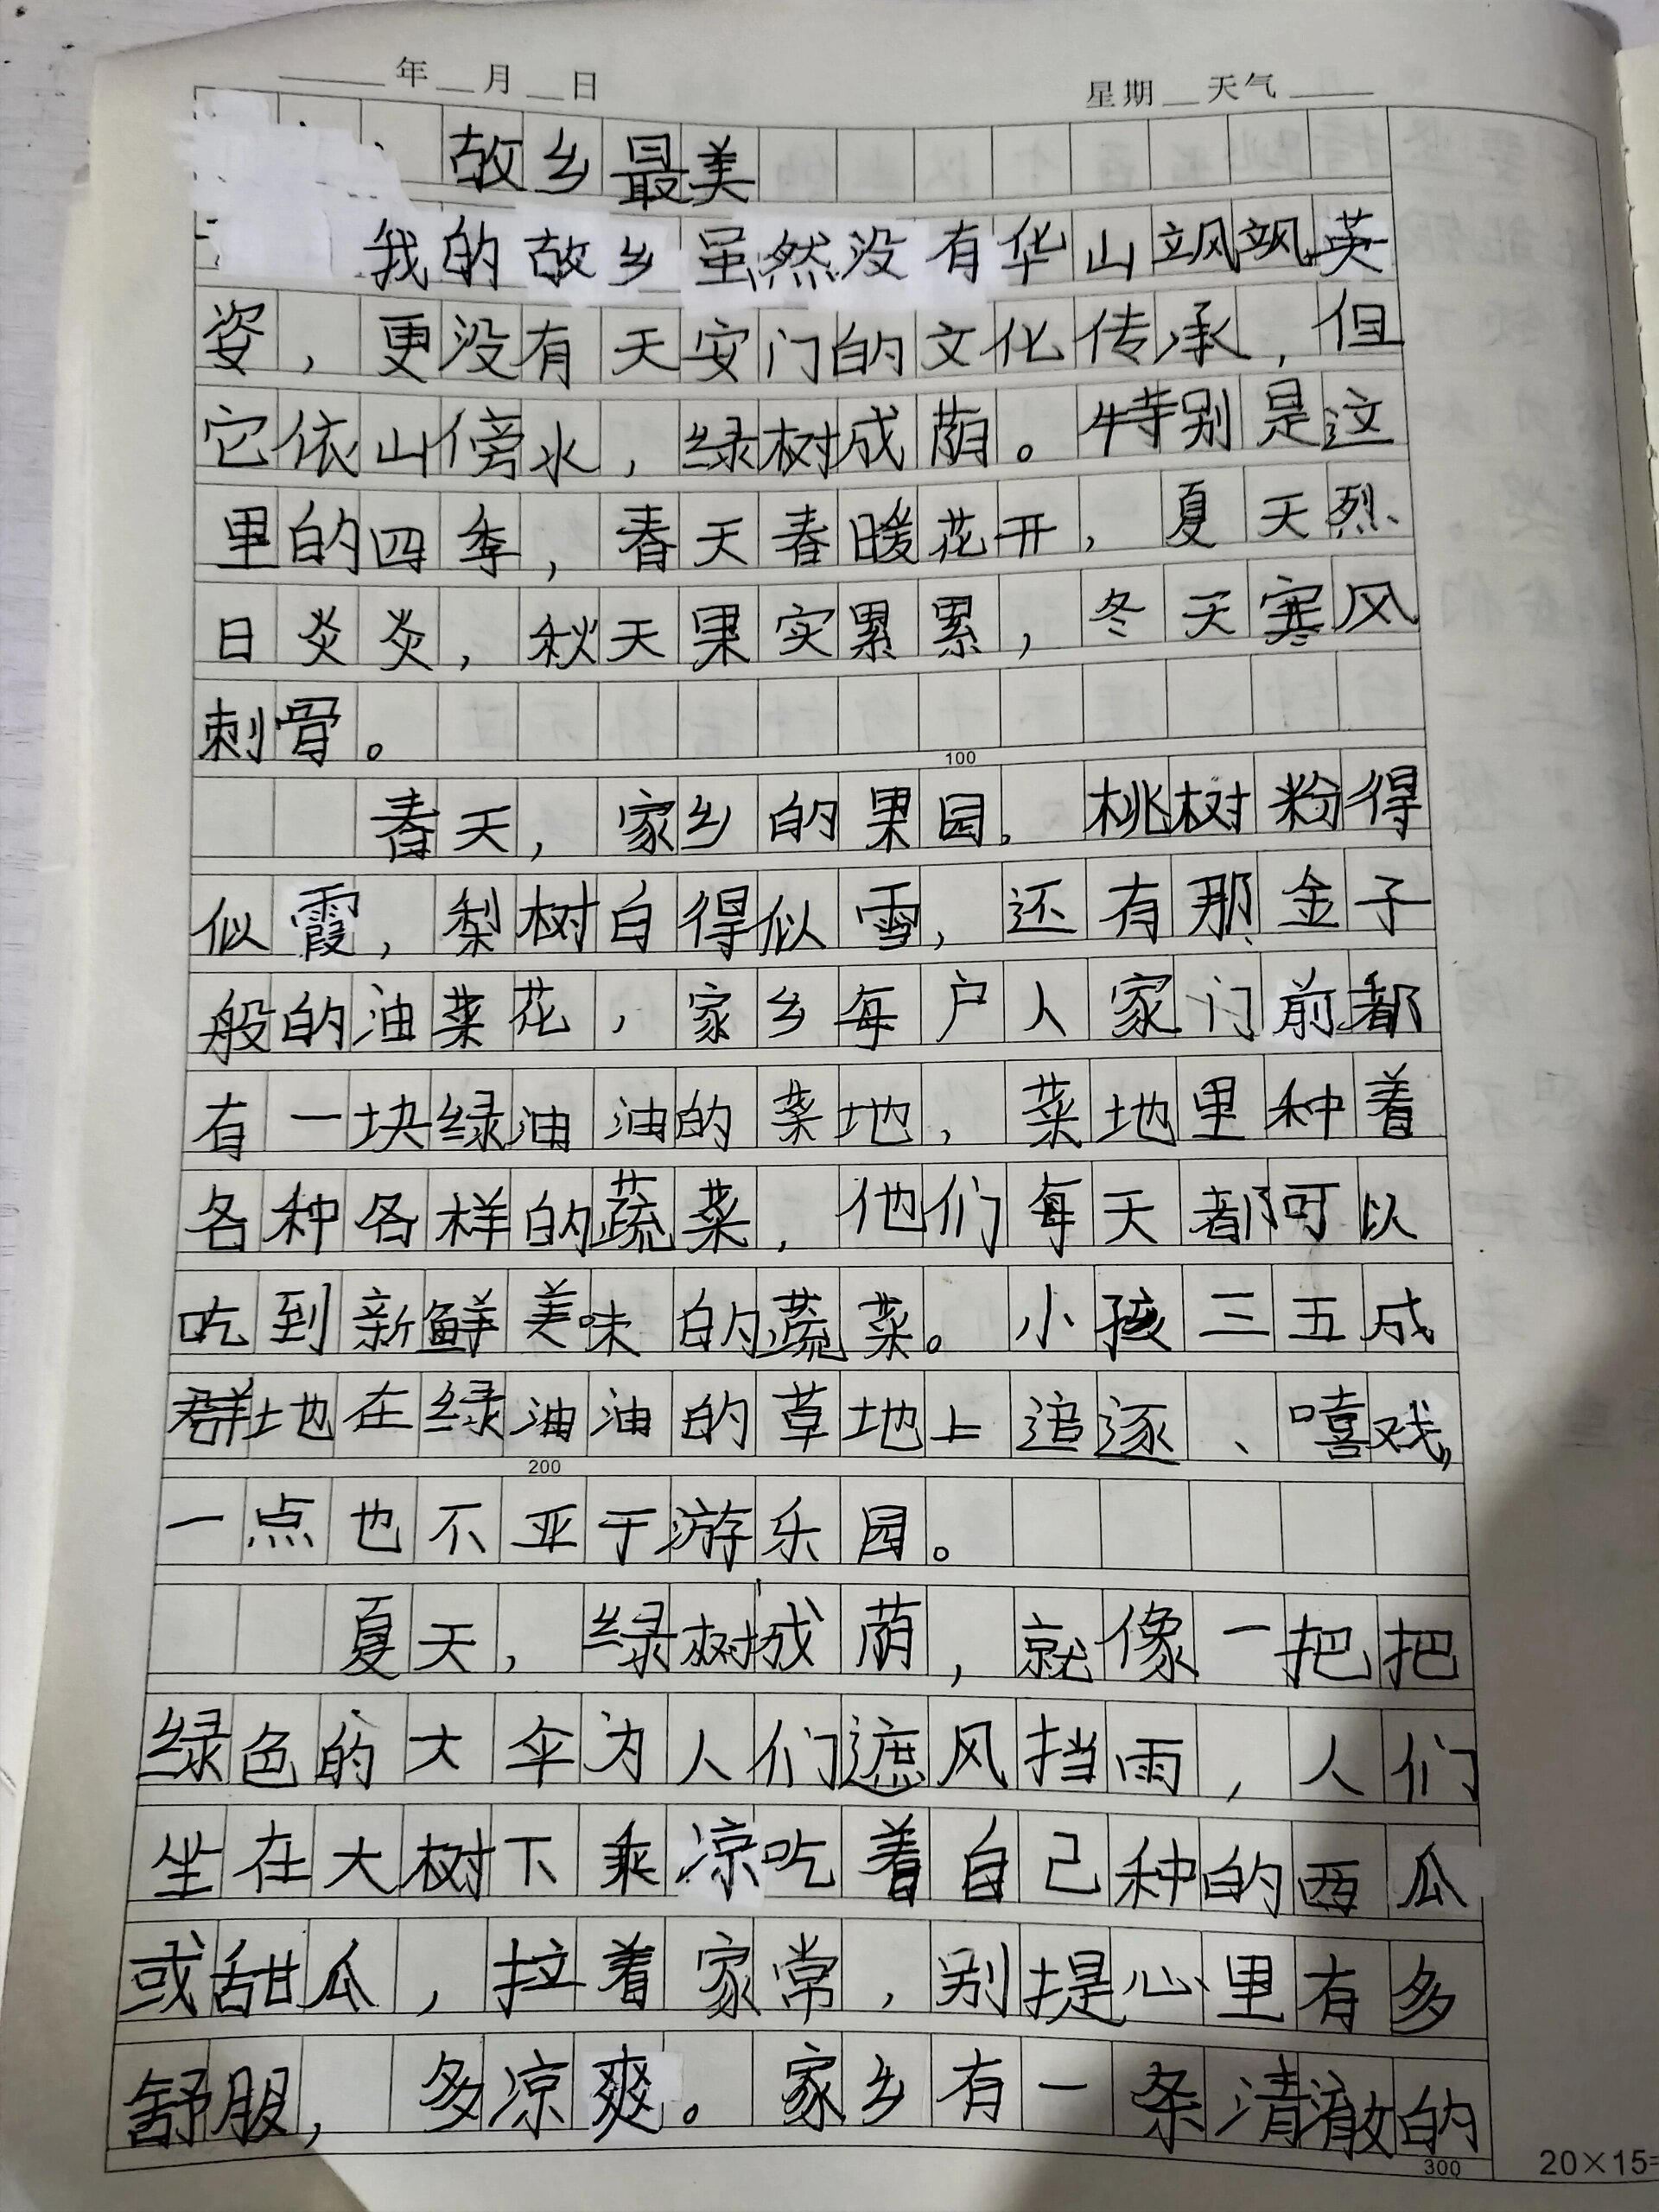 年 月 日 星期 天气
故乡最美
我的故乡虽然没有华山飒飒英
姿，更没有天安门的文化传承，但
它依山傍水，绿树成荫。特别是这
里的四季，春天春暖花开，夏天烈
日炎炎，秋天果实累累，冬天寒风
刺骨。
100
春天，家乡的果园。桃树粉得
似霞，梨树白得似雪，还有那金子
般的油菜花，家乡每户人家门前都
有一块绿油油的菜地，菜地里种着
各种各样的蔬菜，他们每天都可以
吃到新鲜美味的蔬菜。小孩三五成
群地在绿油油的草地上追逐、嘻戏，
200
一点也不亚于游乐园。
夏天，绿树成荫，就像一把把
绿色的大伞为人们遮风挡雨，人们
坐在大树下乘凉吃着自己种的西瓜
或甜瓜，拉着家常，别提心里有多
舒服，多凉爽。家乡有一条清澈的
300
20×15=